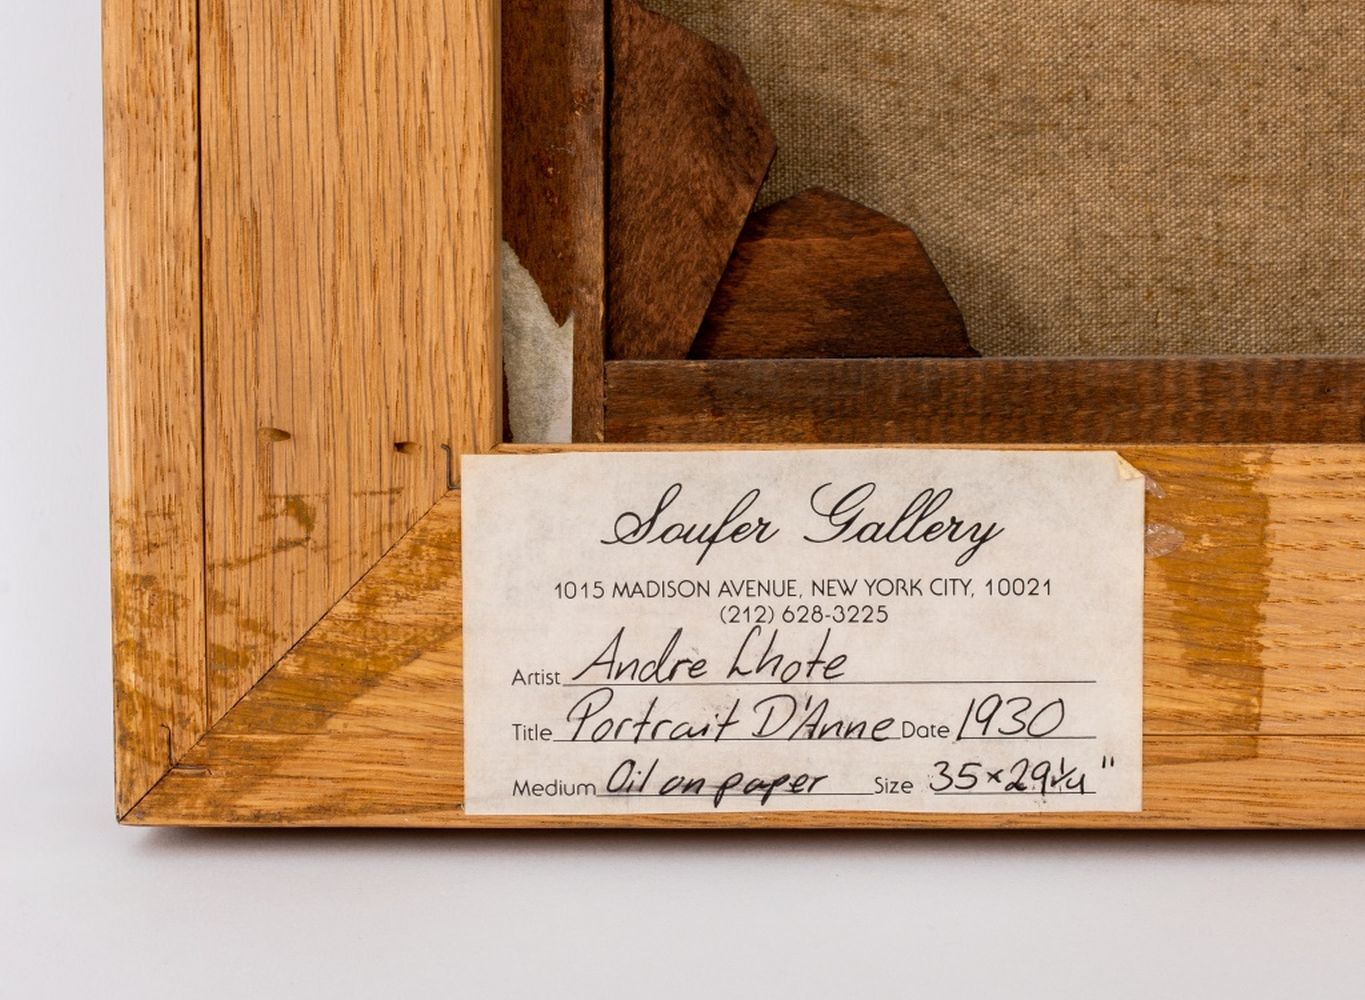 Soufer Gallery
1015 MADISON AVENUE, NEW YORK CITY, 10021
(212) 628-3225
Artist Andre Lhote
Title Portrait D'Anne Date 1930
Medium Oil on paper Size 35×29 1/4"